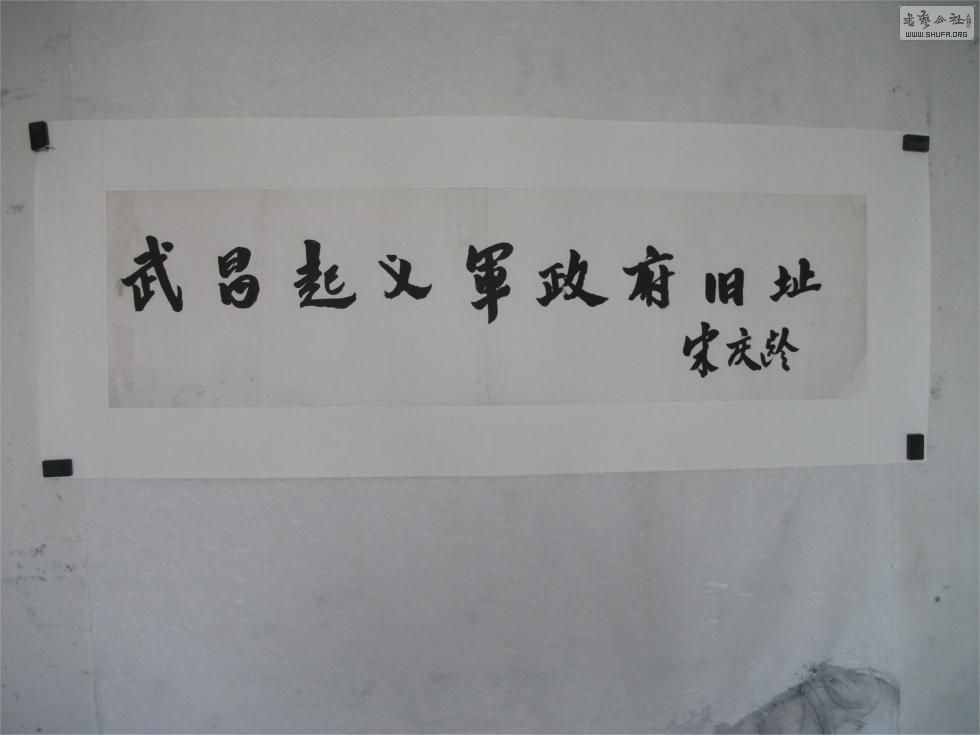 武昌起义軍政府旧址
宋庆龄
书艺公社
WWW.SHUFA.ORG